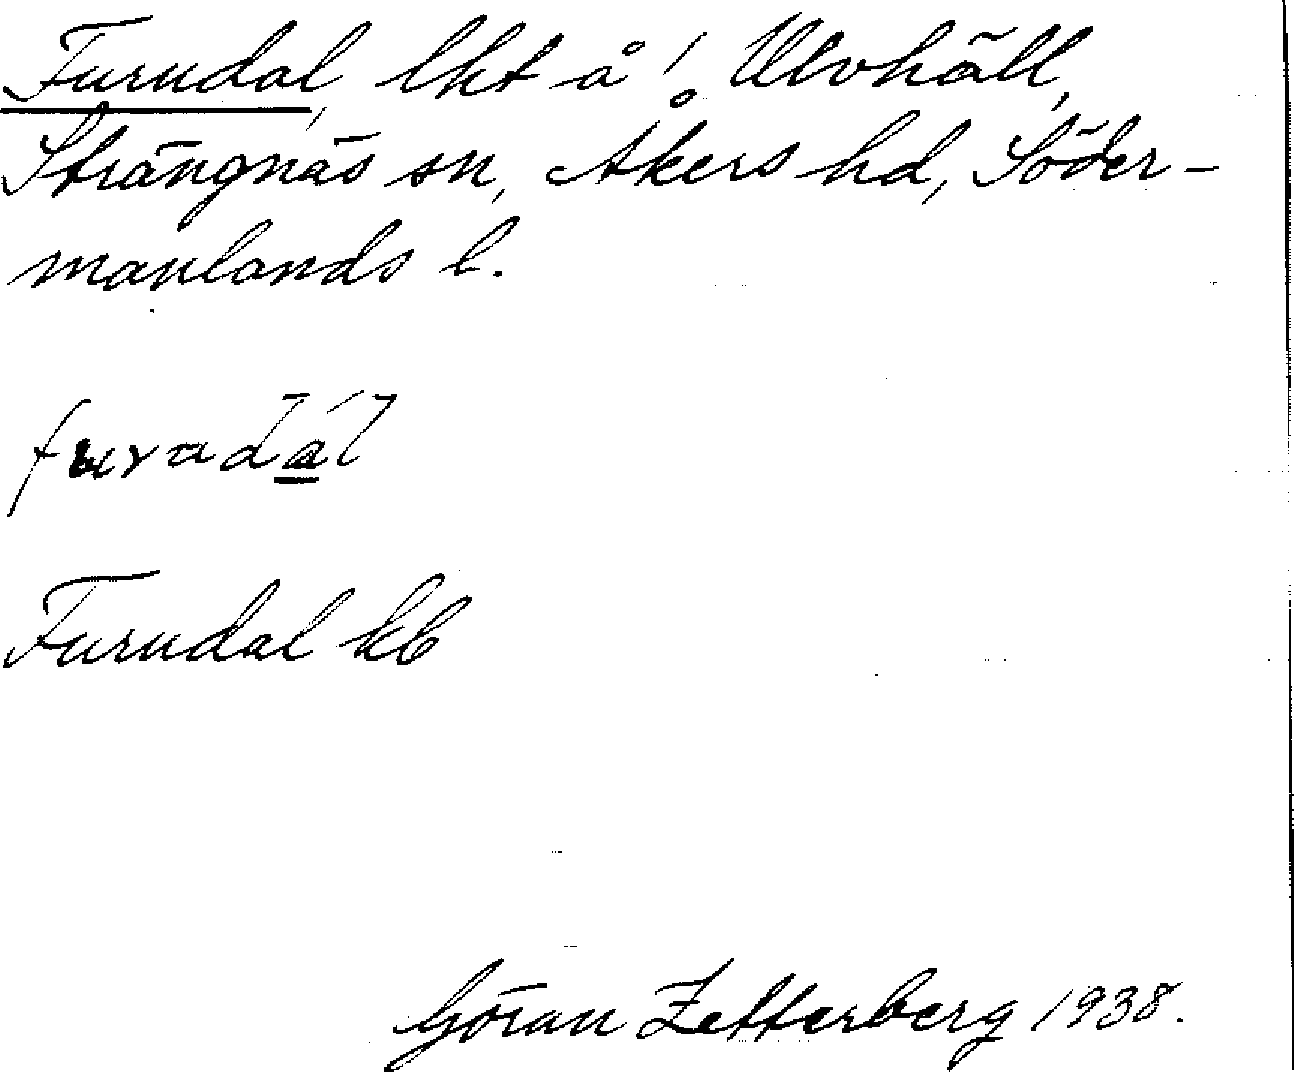 Furudal, lht å ! Ulvhäll,
Strängnäs sn, Åkers hd, Söder-
manlands l.
furadál
Furudal kb
Göran Zetterberg 1938.